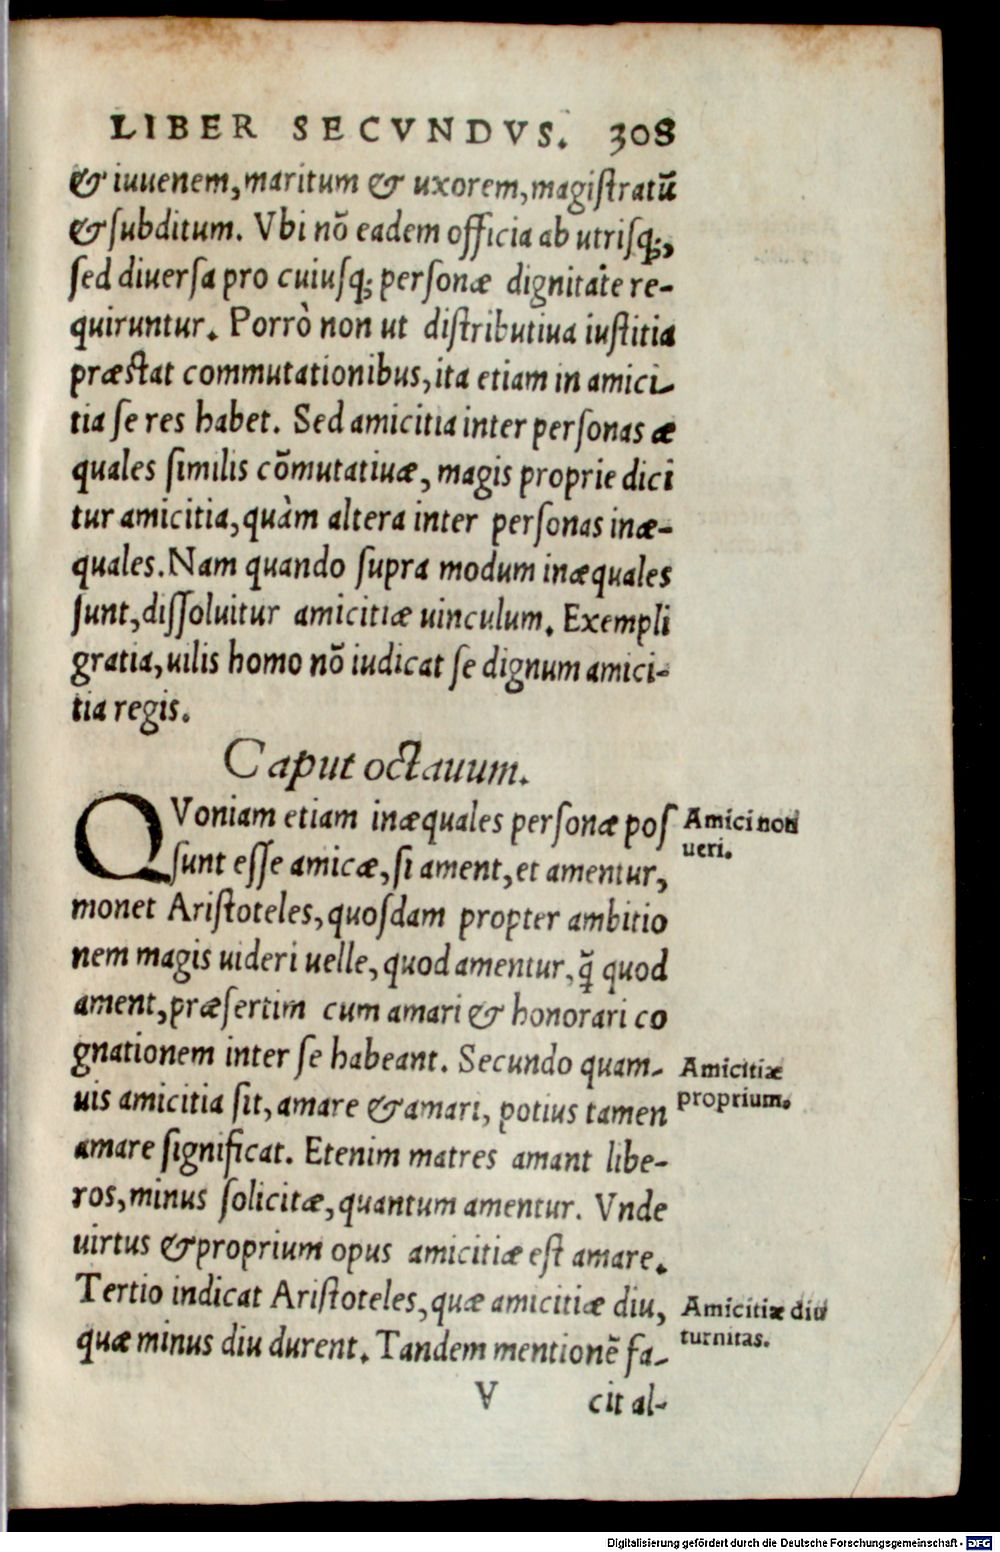 LIBER SECVNDVS. 308
& iuuenem, maritum & uxorem, magiſtratũ
& ſubditum. Vbi nõ eadem officia ab utriſq;,
ſed diuerſa pro cuiuſq; perſonæ dignitate re-
quiruntur. Porrò non ut diſtributiua iuſtitia
præſtat commutationibus, ita etiam in amici-
tia ſe res habet. Sed amicitia inter perſonas æ
quales ſimilis cõmutatiuæ, magis proprie dici
tur amicitia, quàm altera inter perſonas inæ-
quales. Nam quando ſupra modum inæquales
ſunt, diſſoluitur amicitiæ uinculum. Exempli
gratia, uilis homo nõ iudicat ſe dignum amici-
tia regis.
Caput octauum.
QVoniam etiam inæquales perſonæ poſ
ſunt eſſe amicæ, ſi ament, et amentur,
monet Ariſtoteles, quoſdam propter ambitio
nem magis uideri uelle, quod amentur, q̃ quod
ament, præſertim cum amari & honorari co
gnationem inter ſe habeant. Secundo quam-
uis amicitia ſit, amare & amari, potius tamen
amare ſignificat. Etenim matres amant libe-
ros, minus ſolicitæ, quantum amentur. Vnde
uirtus & proprium opus amicitiæ eſt amare.
Tertio indicat Ariſtoteles, quæ amicitiæ diu,
quæ minus diu durent. Tandem mentionẽ fa-
V cit al-
Amici non
ueri.
Amicitiæ
proprium.
Amicitiæ diu
turnitas.
Digitalisierung gefördert durch die Deutsche Forschungsgemeinschaft - DFG